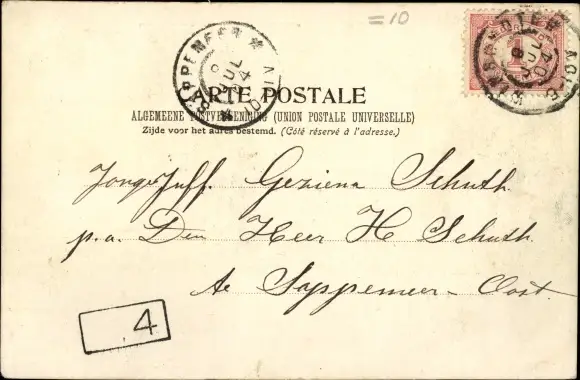 =10
SAPPEMEER
JUL
CARTE POSTALE
ALGEMEENE POSTVEREENIGING (UNION POSTALE UNIVERSELLE)
Zijde voor het adres bestemd. (Côté réservé à l'adresse.)
JongeJuff. Geziena Schuth.
p.a. Den Heer H Schuth.
te Sappemeer-Oost.
4